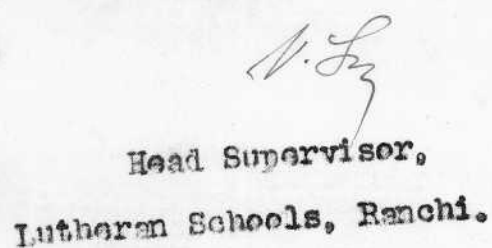 Head Supervisor,
Lutheran Schools, Ranchi.